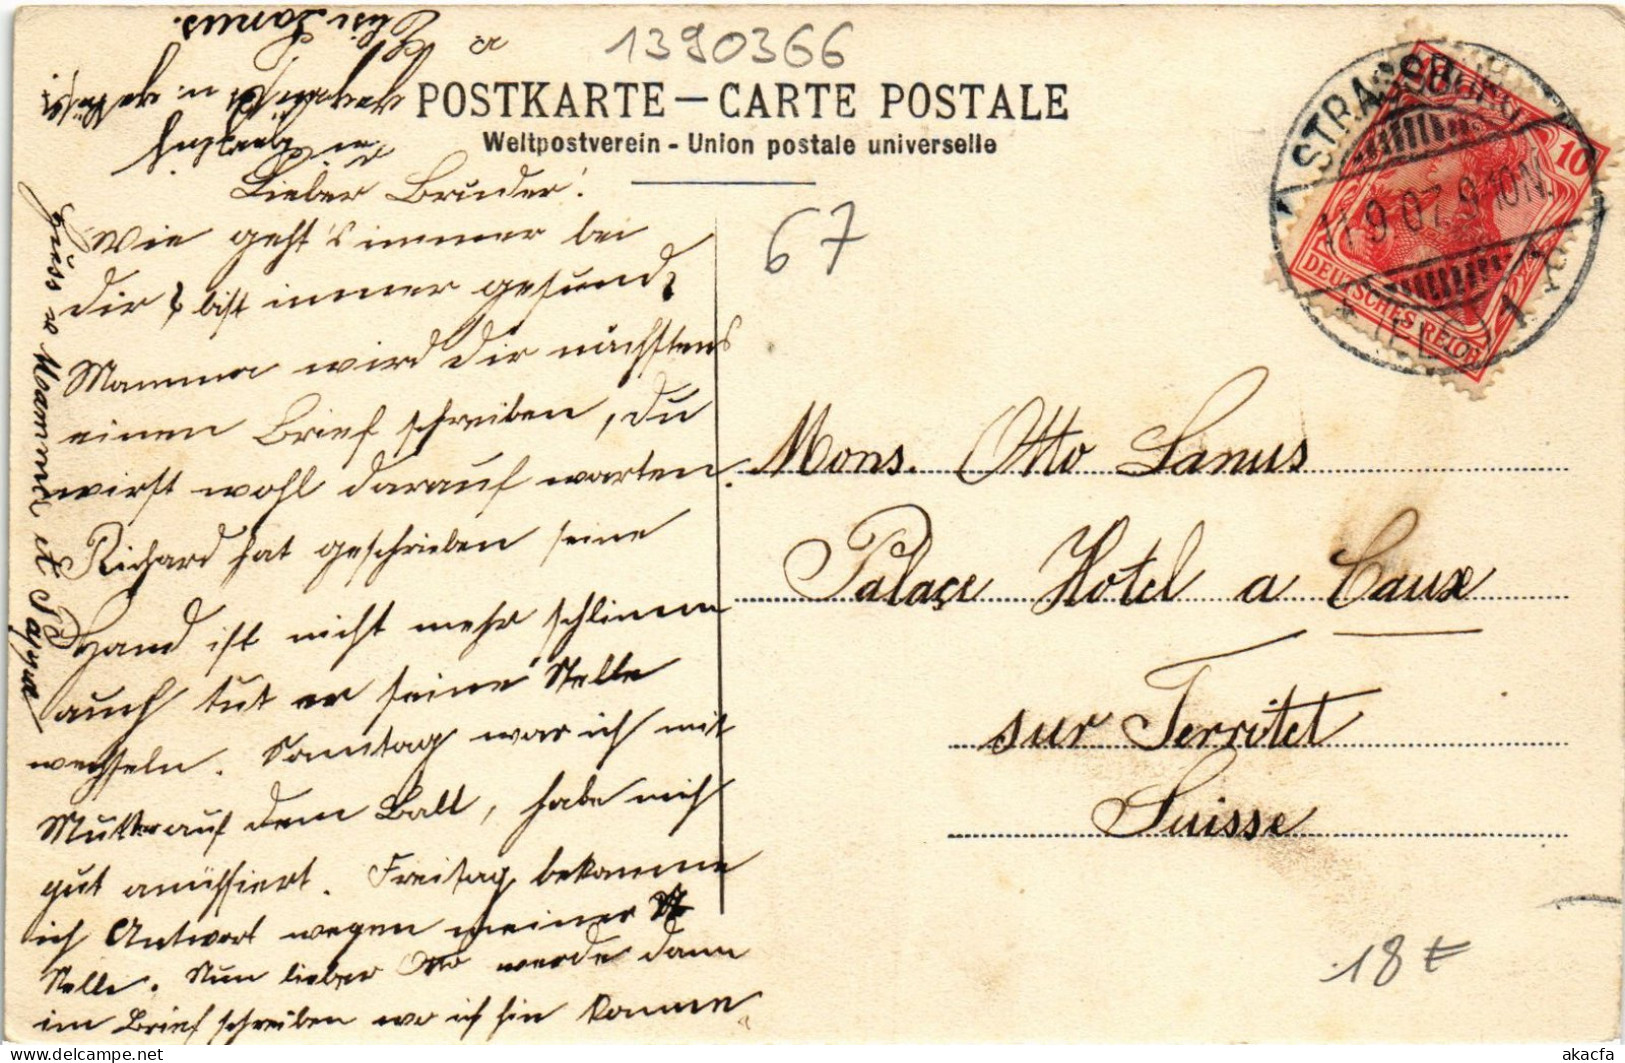 1390366
POSTKARTE — CARTE POSTALE
Weltpostverein - Union postale universelle
67
STRASSBURG
11.9.07.9-10N.
(ELS) 1
10
DEUTSCHES REICH
Lieber Bruder!
Wie geht's immer bei
dir? bist immer gesund?
Mamma wird dir nächstens
einen Brief schreiben, du
wirst wohl darauf warten.
Richard hat geschrieben seine
Hand ist nicht mehr schlimm
auch tut er seine Stelle
wechseln. Sonntag war ich mit
Mutter auf dem Ball, habe mich
gut amüssiert. Freitag bekamme
ich Antwort wegen meiner
Stelle. Nun lieber Otto werde dann
im Brief schreiben wo ich hin komme
Mamma et Papa
Lanus.
Mons. Otto Lanus
Palace Hotel a Caux
sur Territet
Suisse
18 €
delcampe.net
akacfa